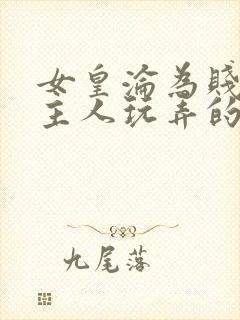 女皇淪為賤
主人玩弄的
九尾落